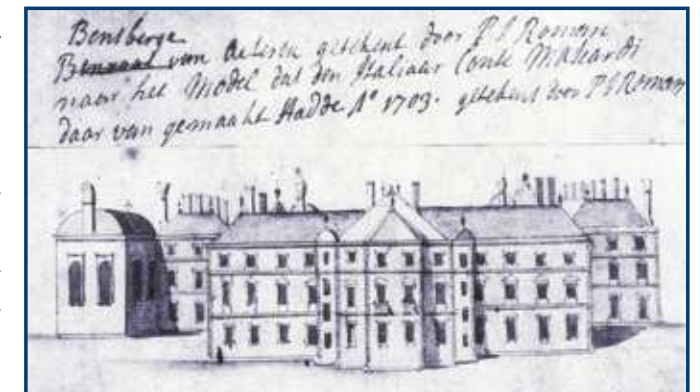 Bensberge
Benraat van Acteren getekent door P S Roman
naar het Model dat den Italiaer Conte Mateardi
daar van gemaakt Hadde Aº 1703. getekent door P S Roman